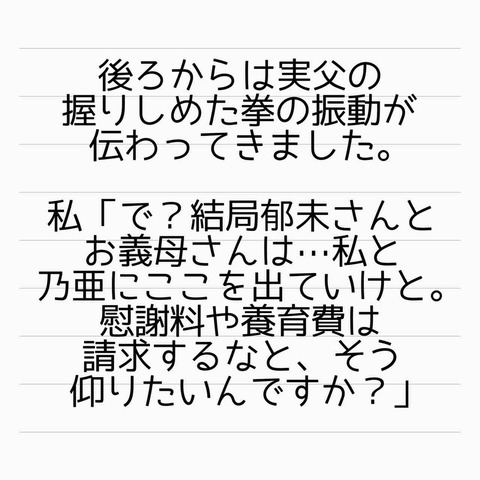 後ろからは実父の
握りしめた拳の振動が
伝わってきました。
私「で？結局郁未さんと
お義母さんは…私と
乃亜にここを出ていけと。
慰謝料や養育費は
請求するなと、そう
仰りたいんですか？」